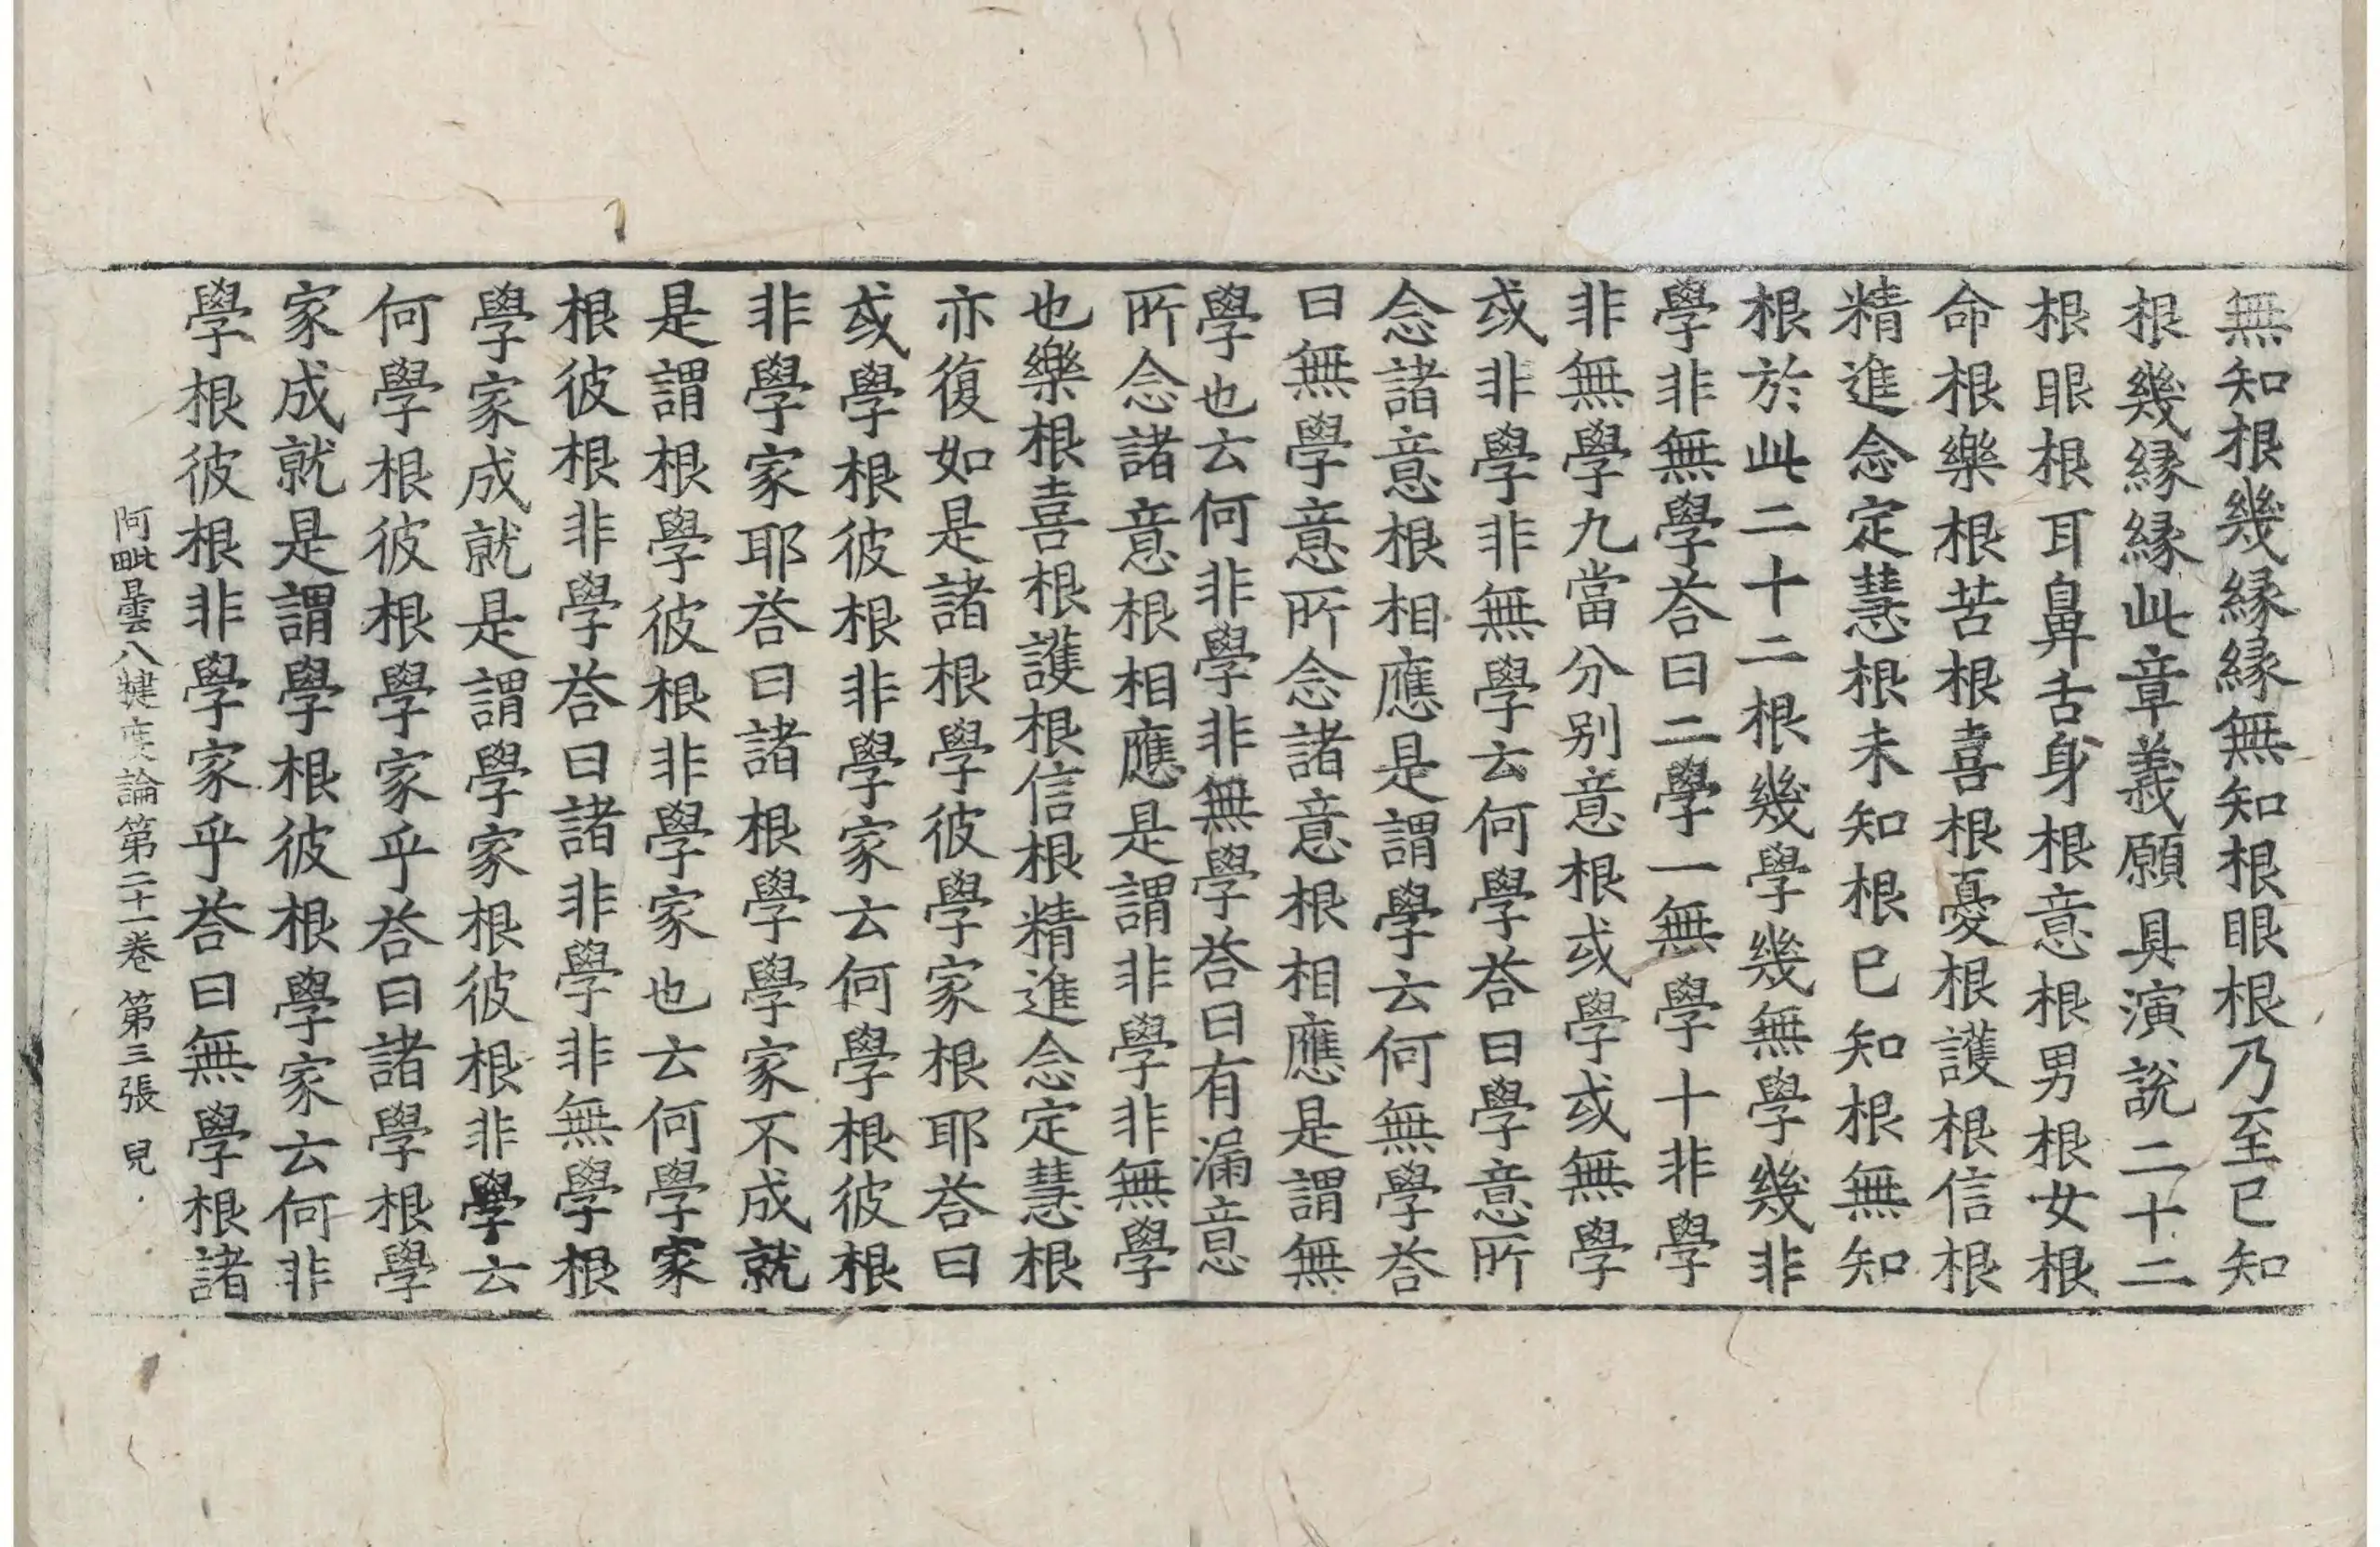 無知根幾縁縁無知根眼根乃至已知
根幾縁縁此章義願具演說二十二
根眼根耳鼻舌身根意根男根女根
命根樂根苦根喜根憂根護根信根
精進念定慧根未知根已知根無知
根於此二十二根幾學幾無學幾非
學非無學荅曰二學一無學十非學
非無學九當分別意根或學或無學
或非學非無學云何學荅曰學意所
念諸意根相應是謂學云何無學荅
曰無學意所念諸意根相應是謂無
學也云何非學非無學荅曰有漏意
所念諸意根相應是謂非學非無學
也樂根喜根護根信根精進念定慧根
亦復如是諸根學彼學家根耶荅曰
或學根彼根非學家云何學根彼根
非學家耶荅曰諸根學學家不成就
是謂根學彼根非學家也云何學家
根彼根非學荅曰諸非學非無學根
學家成就是謂學家根彼根非學云
何學根彼根學家乎荅曰諸學根學
家成就是謂學根彼根學家云何非
學根彼根非學家乎荅曰無學根諸
阿毗曇八犍度論第二十一卷 第三張 兒